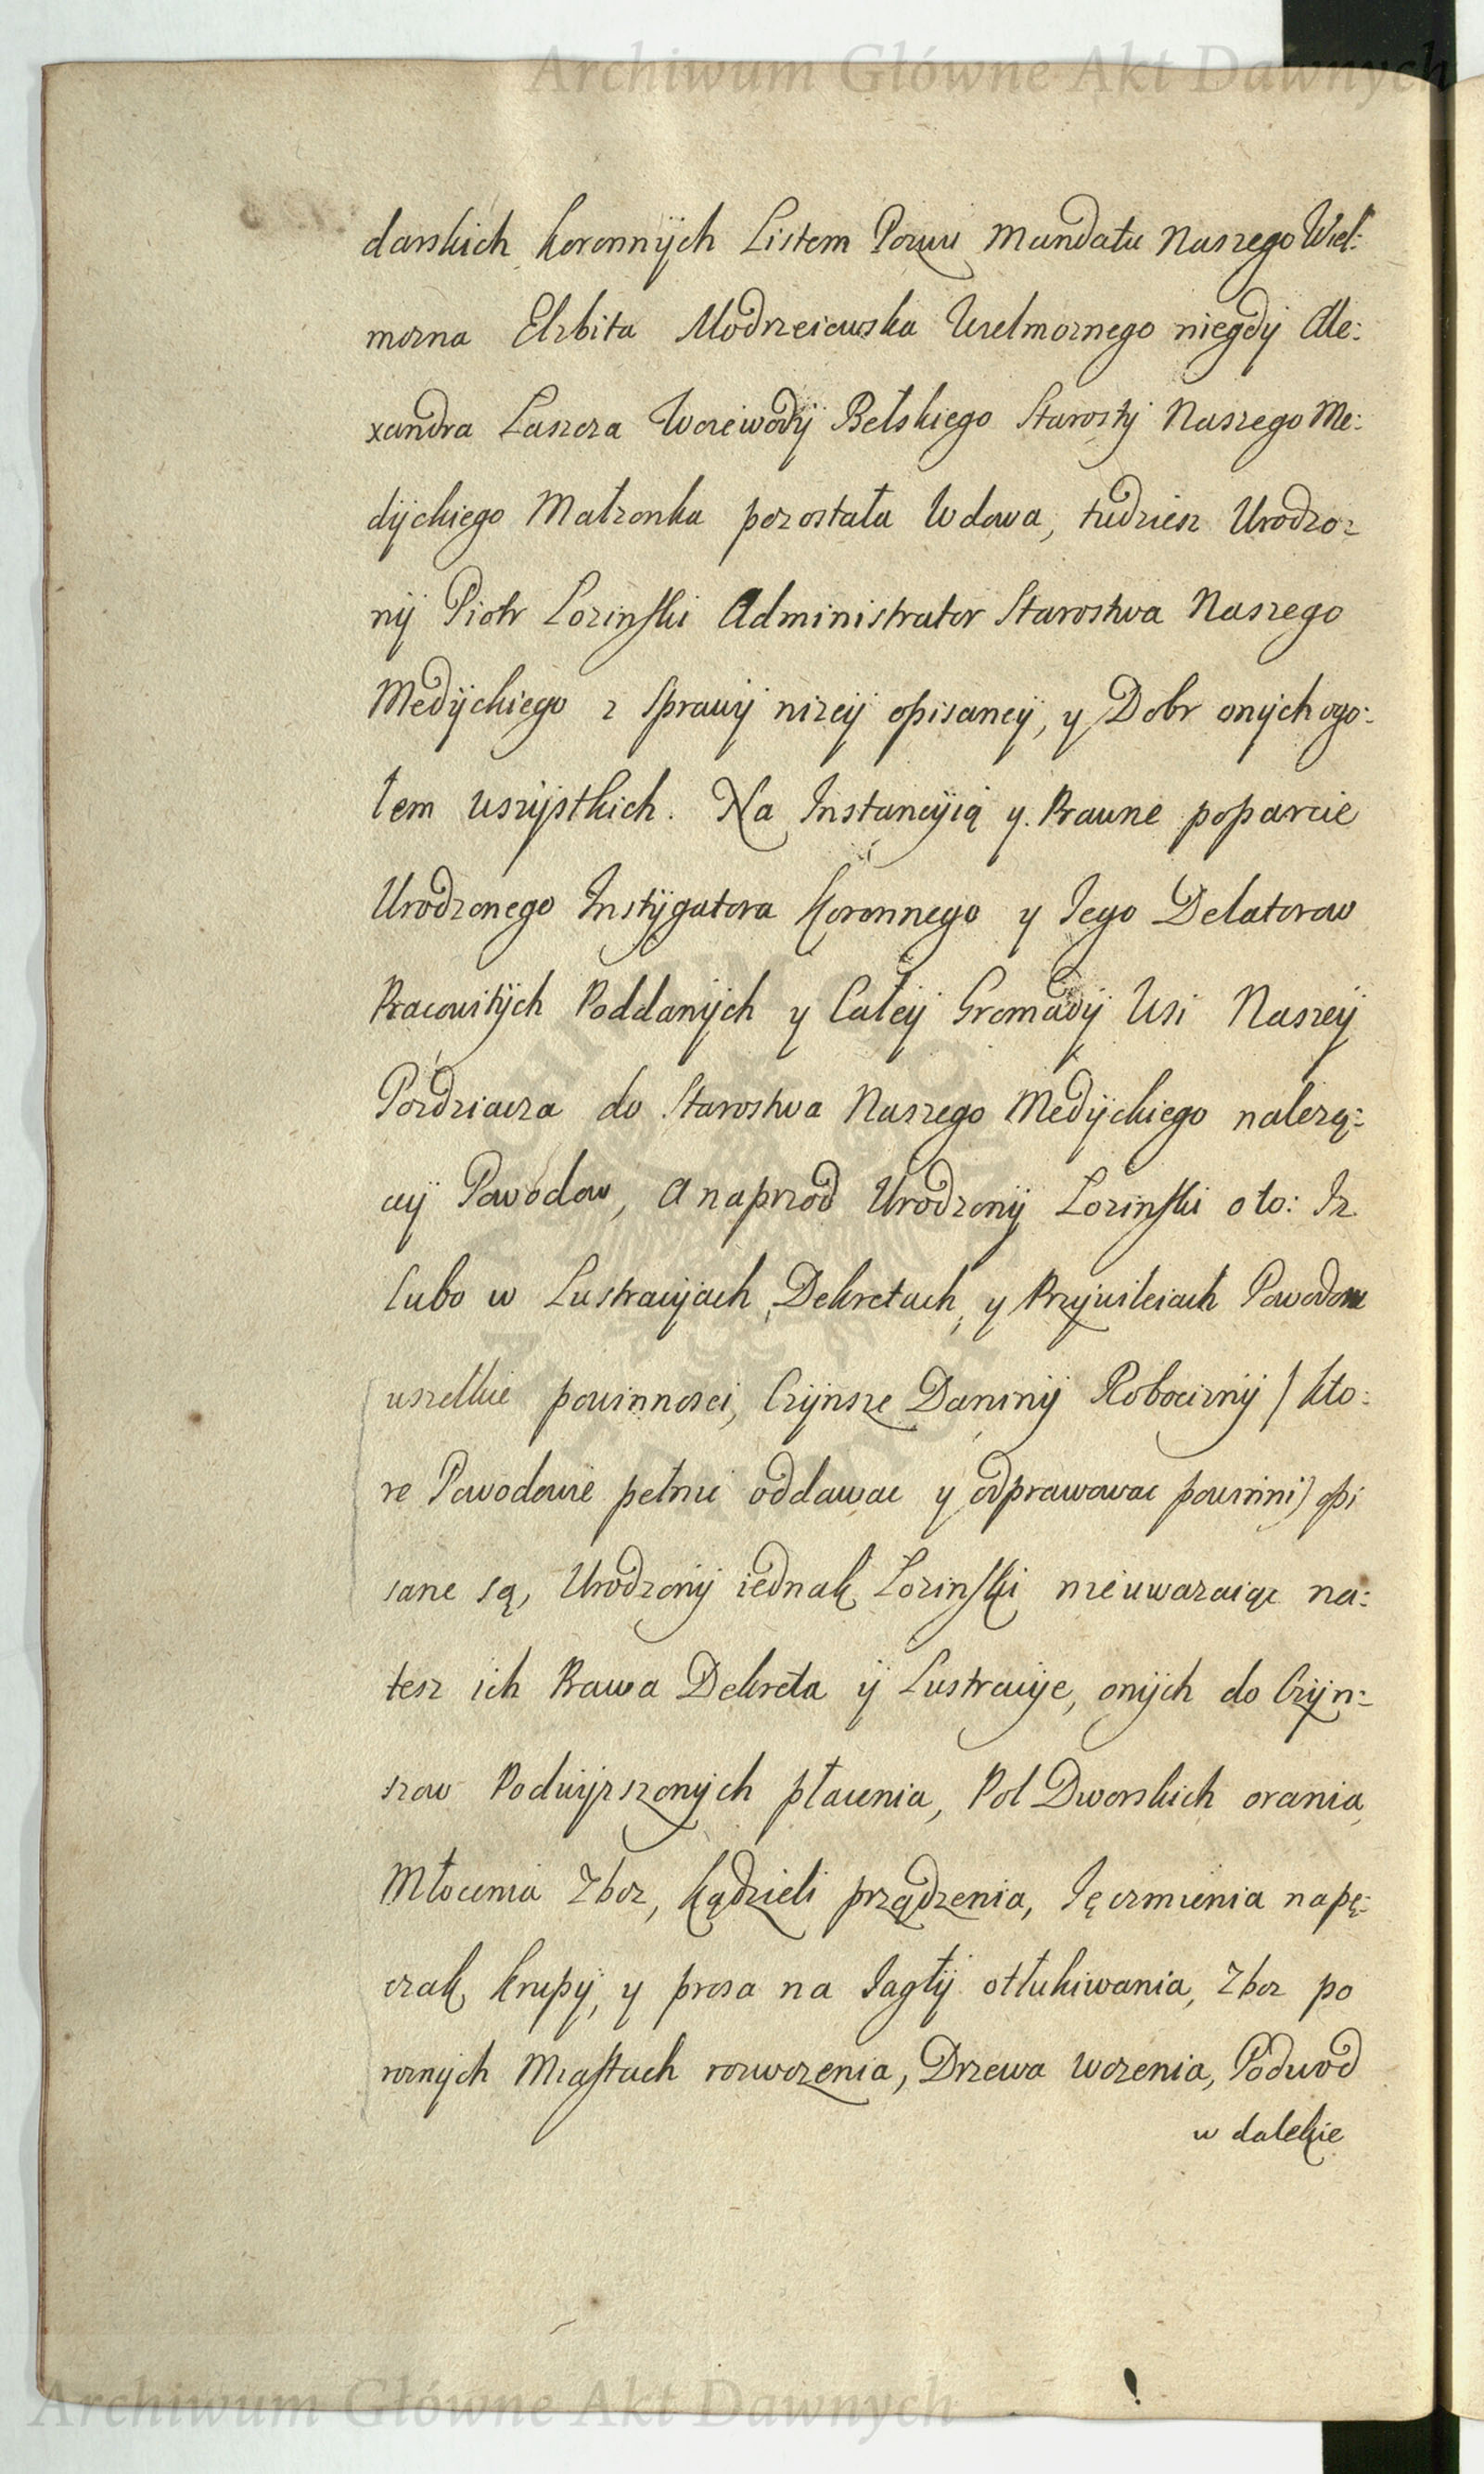 Archiwum Główne Akt Dawnych
darskich koronnÿch Listem Pozwu Mandatu Naszego Wiel:
mozna Elzbita Modrzeiewska Wielmoznego niegdÿ Ale:
xandra Laszcza WoiewodÿBełskiego StarostÿNaszego Me:
dÿckiego Małzonka pozostała Wdowa, tudziesz Urodzo:
nÿ Piotr Lozinski Administrator Starostwa Naszego
Medÿckiego z Sprawÿ nizeÿ opisaneÿ, y Dobr onÿch ogo:
łem wszÿstkich. Na Instancÿią y Prawne poparcie
Urodzonego Instÿgatora Koronnego y Jego Delatorow
Pracowitÿch Poddanÿch y Całeÿ Gromadÿ Wsi Naszeÿ
Pozdziacza do Starostwa Naszego Medÿckiego nalezą:
cÿ Powodow, a naprzod Urodzonÿ Lozinski oto: Iz
lubo w Lustracÿach, Dekretach, y Przÿwileiach Powodow
wszelkie powinnosci, Czÿnsze Daninÿ Robociznÿ / kto:
re Powodowie pełnic oddawac y odprawowac powinni) opi
sane są, Urodzonÿ iednak Lozinski nieuwazaiąc na:
tesz ich Prawa Dekreta ÿ Lustracÿe, onÿch do Czÿn:
szow Podwÿzszonÿch płacenia, Pol Dworskich orania,
Młocenia Zboz, Kądzieli prządzenia, Jęczmienia napę:
czak krupÿ, y prosa na Jagłÿ otłukiwania, Zboz po
roznÿch Miastach rozwozenia, Drzewa wozenia, Podwod
w dalekie
Archiwum Główne Akt Dawnych